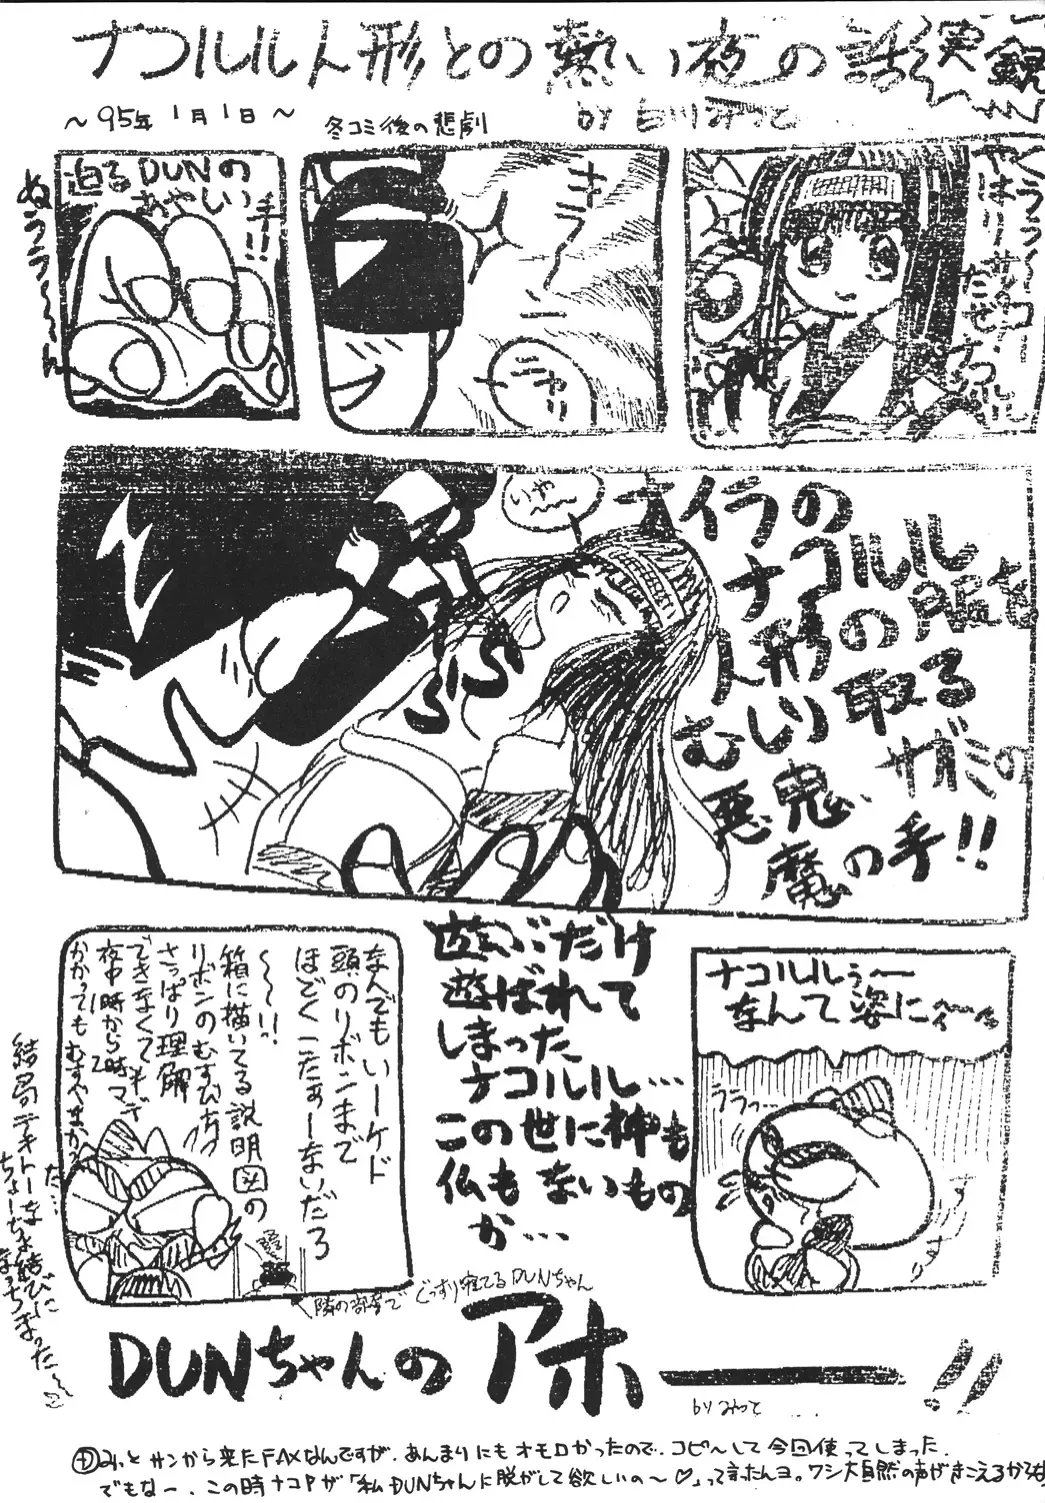 ナコルル人形との熱い夜の話
実録
〜95年1月1日〜
冬コミ後の悲劇
by 白川みつと
クラクラ〜
やはりサムスピ
ナコルル
キラーン
ニヤリ
迫るDUNの
あやしい
手!!
ぬうう〜〜ん
いや〜
ナイテイヤガルナコルル
人形の服を
むしり取る
悪鬼、サガミの
魔の手!!
ナコルルぅ〜
なんて姿に〜
ううっ…
遊ぶだけ
遊ばれて
しまった
ナコルル…
この世に神も
仏もないもの
か…
なんでもいーケド
頭のリボンまで
ほどくこたぁーないだろ
〜〜!!
箱に描いてる説明図の
リボンのむすびが
さっぱり理解
できなくて
夜中11時から2時マデ
かかってもむすべませんか
隣の部屋でぐっすり寝てるDUNちゃん
結局テキトーな結びに
ちょーちょ結び
なっちまった〜
た…
DUNちゃんの アホー!!
by みつと
みっとサンから来たFAXなんですが、あんまりにもオモロかったので、コピ〜して今回使ってしまった。
でもなー、この時ナコPが「私DUNちゃんに脱がして欲しいの〜♡」って言ったんヨ。ワシ大自然の声がきこえるからな